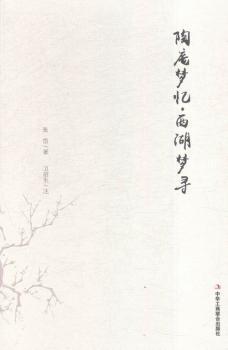 陶庵梦忆·西湖梦寻
张岱/著
中华工商联合出版社